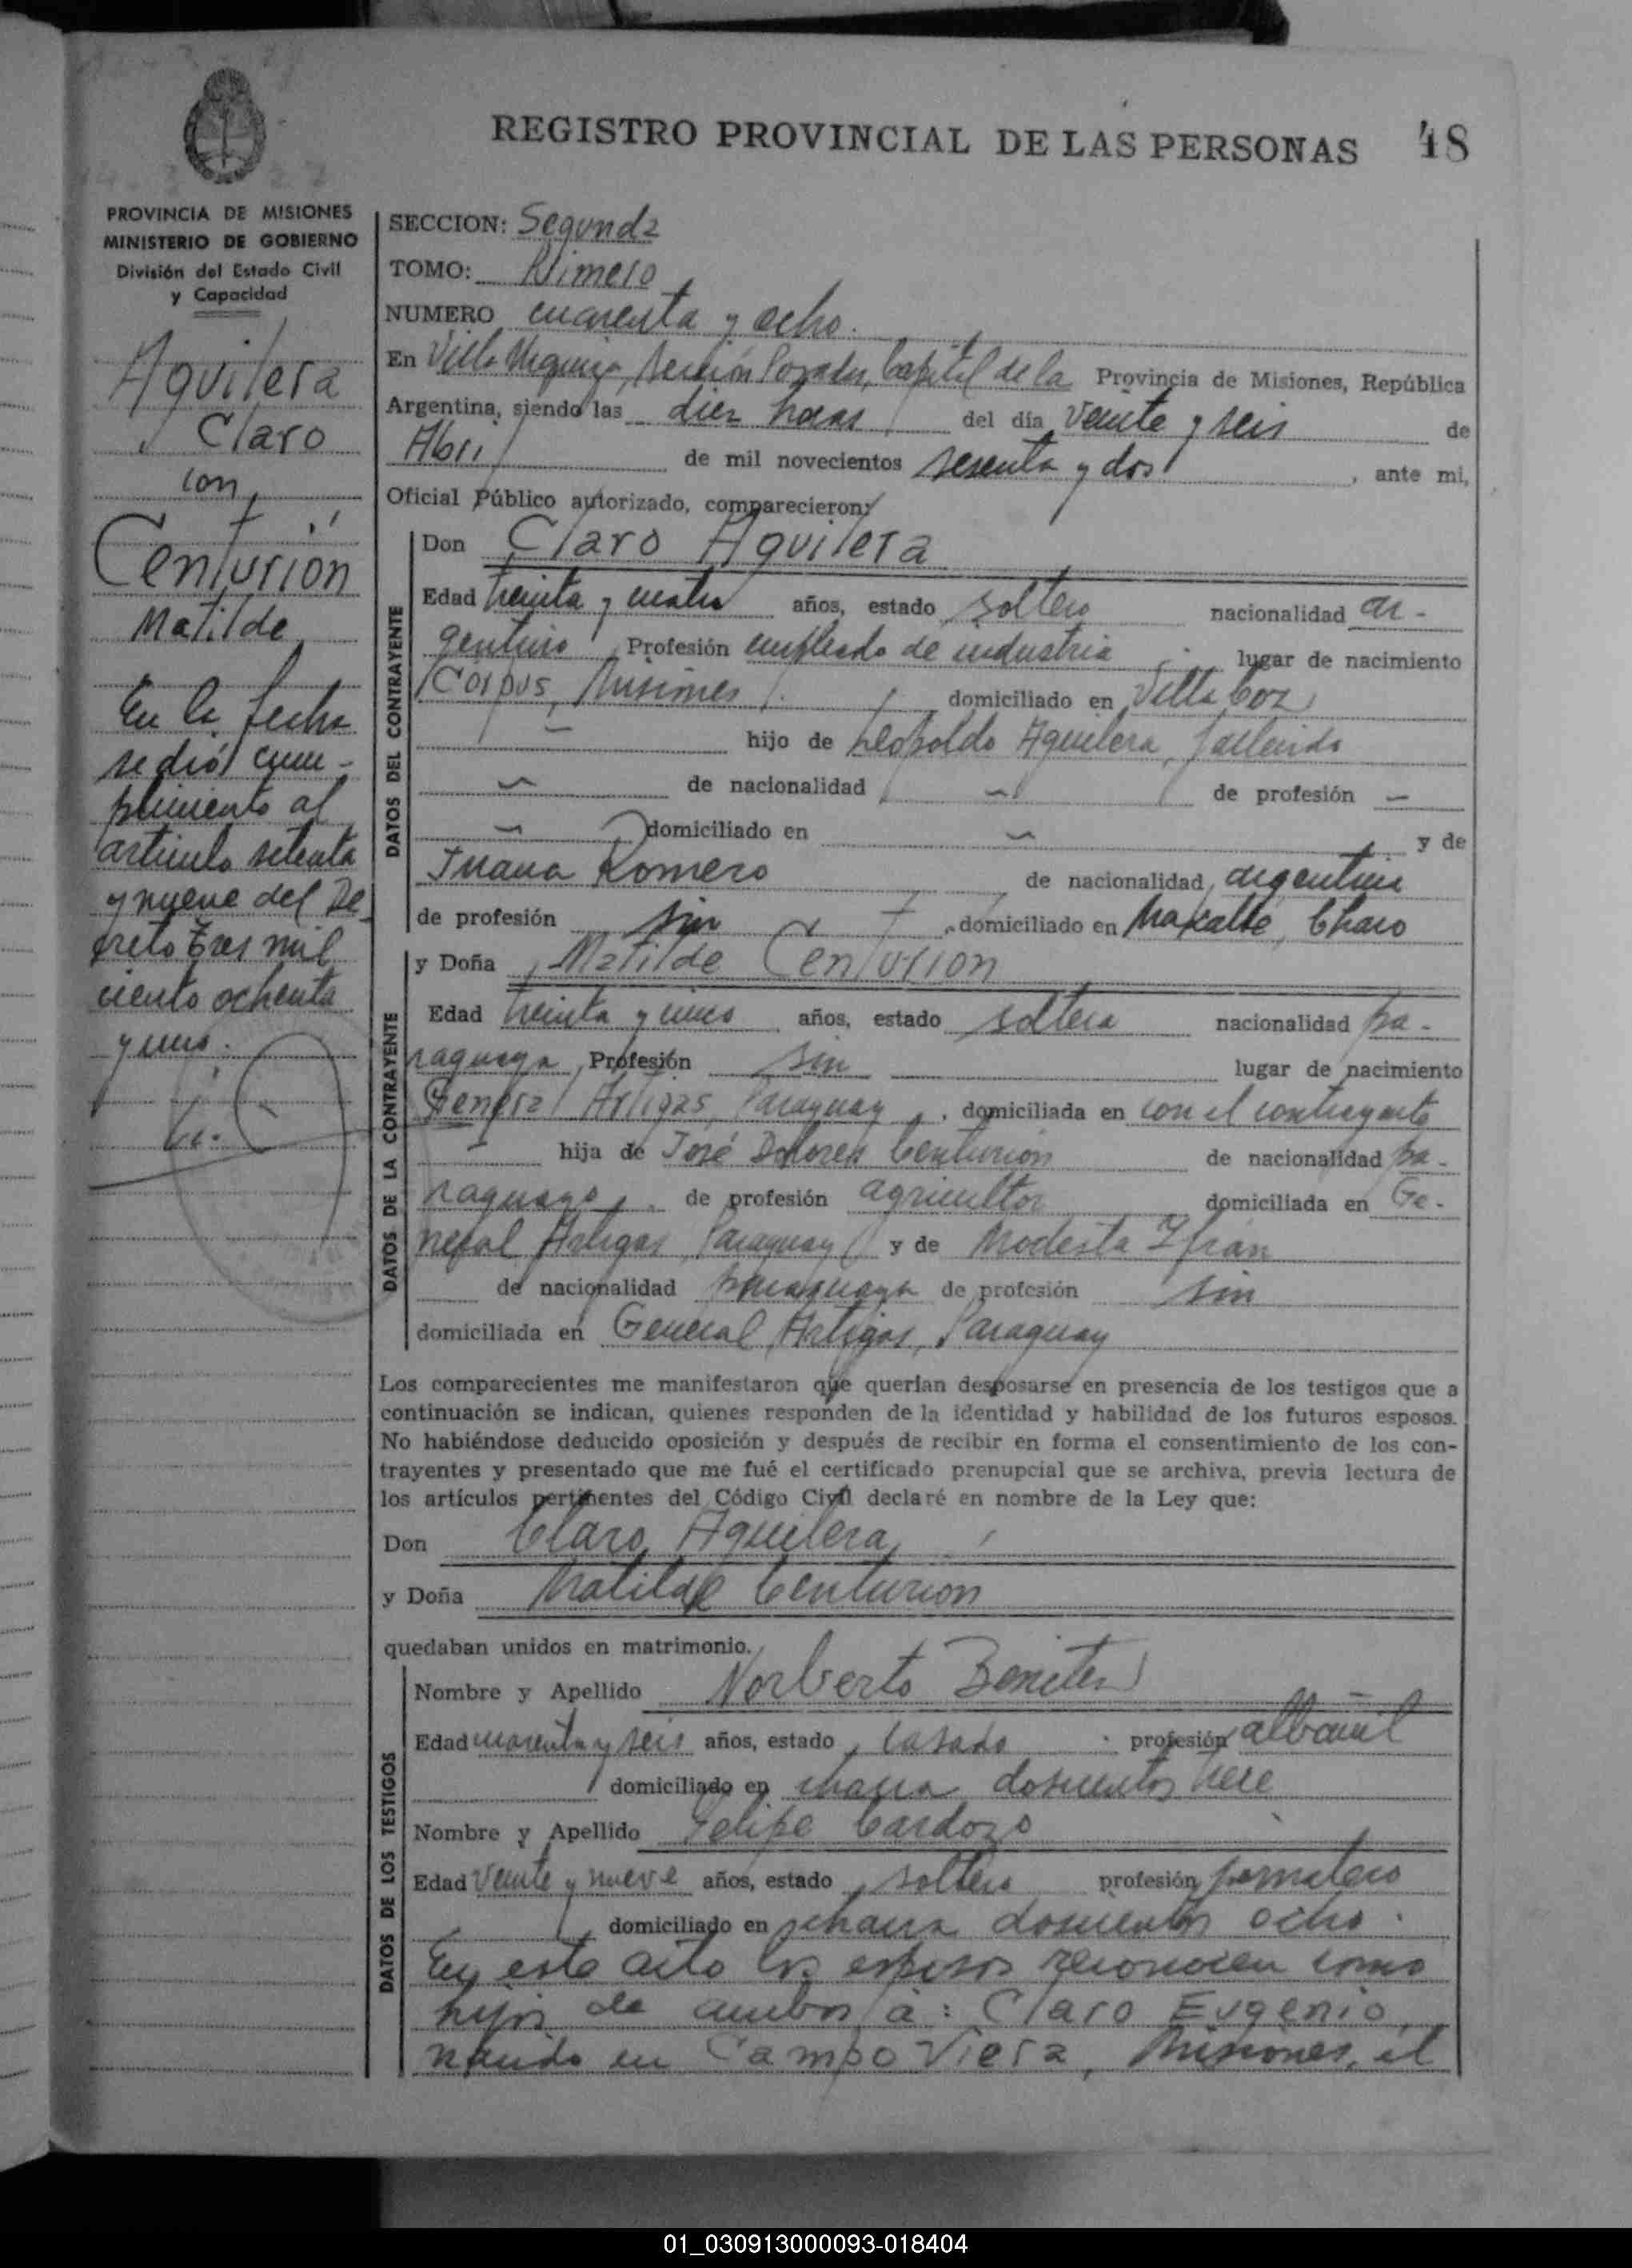 REGISTRO PROVINCIAL DE LAS PERSONAS 48
PROVINCIA DE MISIONES
MINISTERIO DE GOBIERNO
División del Estado Civil
y Capacidad
Aguilera
Claro
con
Centurión
Matilde
En la fecha
se dió cum-
plimiento al
artículo setenta
y nueve del De-
creto tres mil
ciento ochenta
y uno.
SECCION: Segunda
TOMO: Primero
NUMERO cuarenta y ocho.
En Villa Urquiza, Sección Posadas, Capital de la Provincia de Misiones, República
Argentina, siendo las diez horas del día veinte y seis de
Abril de mil novecientos sesenta y dos, ante mi,
Oficial Público autorizado, comparecieron:
DATOS DEL CONTRAYENTE
Don Claro Aguilera
Edad treinta y cuatro años, estado soltero nacionalidad ar-
gentino Profesión empleado de industria lugar de nacimiento
Corpus, Misiones domiciliado en Villa Coz
— hijo de Leopoldo Aguilera, fallecido
— de nacionalidad — de profesión —
— domiciliado en — y de
Juana Romero de nacionalidad argentina
de profesión sin domiciliado en Makallé, Chaco
DATOS DE LA CONTRAYENTE
y Doña Matilde Centurión
Edad treinta y cinco años, estado soltera nacionalidad pa-
raguaya Profesión sin lugar de nacimiento
General Artigas, Paraguay, domiciliada en con el contrayente
— hija de José Dolores Centurión de nacionalidad pa-
raguayo, de profesión agricultor domiciliada en Ge-
neral Artigas, Paraguay y de Modesta Ifrán
de nacionalidad paraguaya de profesión sin
domiciliada en General Artigas, Paraguay
Los comparecientes me manifestaron que querían desposarse en presencia de los testigos que a
continuación se indican, quienes responden de la identidad y habilidad de los futuros esposos.
No habiéndose deducido oposición y después de recibir en forma el consentimiento de los con-
trayentes y presentado que me fué el certificado prenupcial que se archiva, previa lectura de
los artículos pertinentes del Código Civil declaré en nombre de la Ley que:
Don Claro Aguilera
y Doña Matilde Centurion
quedaban unidos en matrimonio.
DATOS DE LOS TESTIGOS
Nombre y Apellido Norberto Benitez
Edad cuarenta y seis años, estado casado profesión albañil
domiciliado en chacra doscientos trece
Nombre y Apellido Felipe Cardozo
Edad veinte y nueve años, estado soltero profesión jornalero
domiciliado en chacra doscientos ocho.
En este acto los esposos reconocen como
hijos de ambos a: Claro Eugenio,
nacido en Campo Viera, Misiones, el
01_030913000093-018404